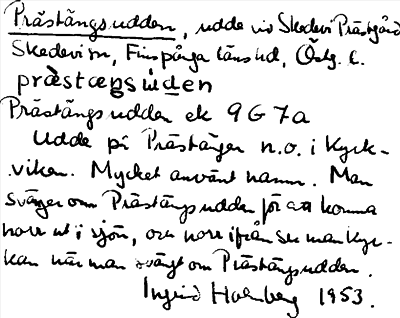 Prästängsudden, udde vid Skedevi Prästgård
Skedevi sn, Finspånga läns hd, Östg. l.
præstæŋsu̇̀den
Prästängsudden ek 9G7a
Udde på Prästängen n.o. i Kyrk-
viken. Mycket använt namn. Man
svänger om Prästängsudden för att komma
norr ut i sjön, och norr ifrån ser man kyr-
kan när man svängt om Prästängsudden.
Ingrid Holmberg 1953.